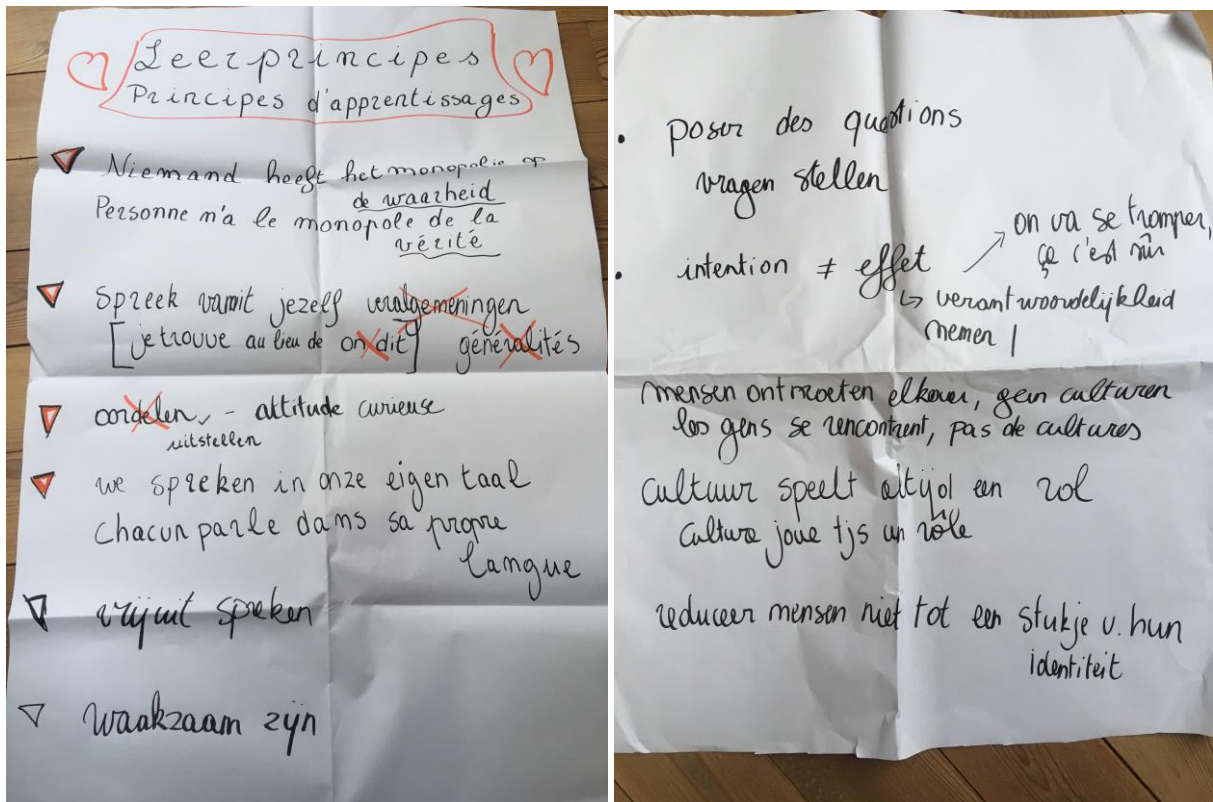 Leerprincipes
Principes d'apprentissages
Niemand heeft het monopolie op
de waarheid
Personne n'a le monopole de la
vérité
Spreek vanuit jezelf veralgemeningen
[je trouve au lieu de on dit] généralités
oordelen, - attitude curieuse
uitstellen
we spreken in onze eigen taal
Chacun parle dans sa propre
langue
vrijuit spreken
waakzaam zijn
• poser des questions
vragen stellen
• intention ≠ effet ↗ on va se tromper,
ça c'est sûr
↳ verantwoordelijkheid
nemen !
mensen ontmoeten elkaar, geen culturen
les gens se rencontrent, pas de cultures
cultuur speelt altijd een rol
culture joue tjs un rôle
reduceer mensen niet tot een stukje v. hun
identiteit